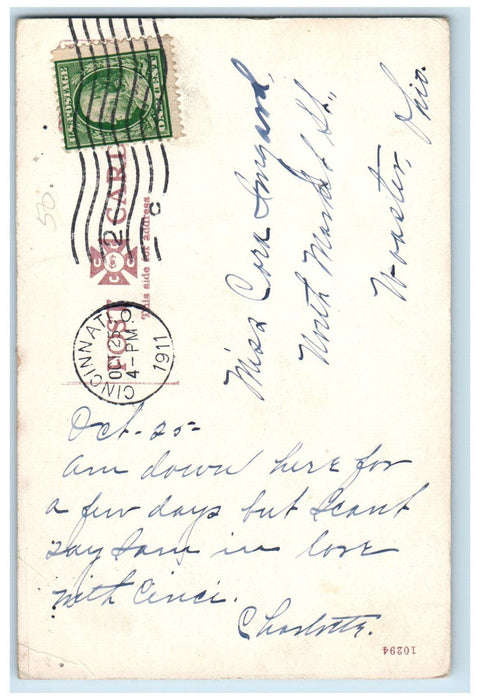 U.S. POSTAGE
ONE CENT
50.
POST CARD
This side for address
2
C
CINCINNATI, O.
OCT 25
4-PM
1911
Miss Cora
North Market St.,
Wooster, Ohio.
Oct-25-
Am down here for
a few days but scant
say I am in love
with Cinci.
Charlotte.
10294